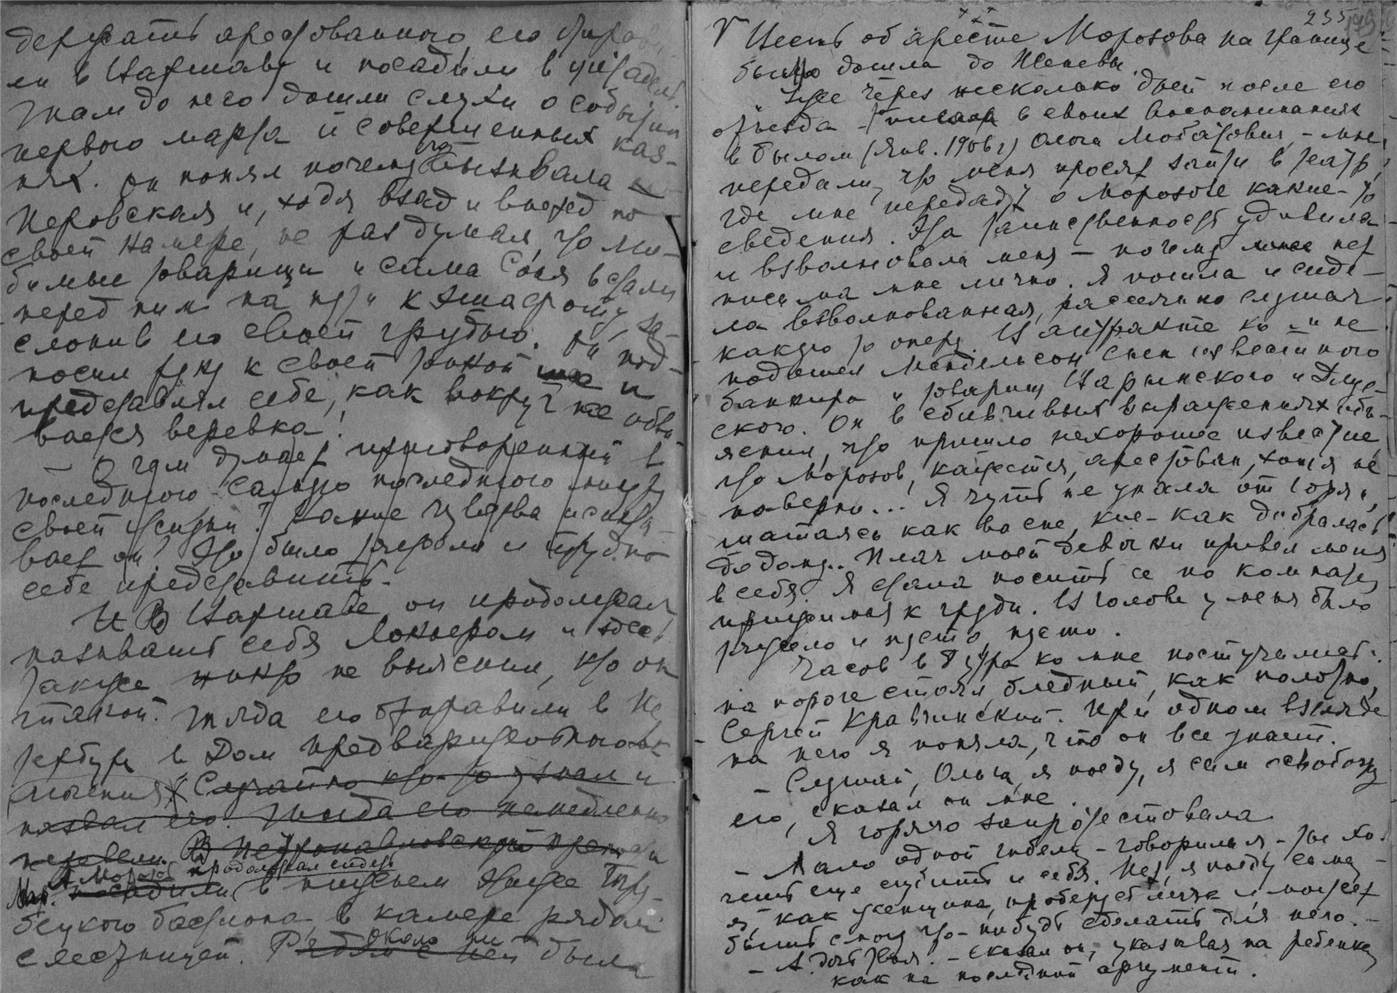 держать арестованного, его отправи-
ли в Варшаву и посадили в цитадель.
Там до него дошли слухи о событии
первого марта и совершенных каз-
нях. Он понял почему его вызывала
Перовская и, ходя взад и вперед по
своей камере, не раз думал, что лю-
бимые товарищи и сама Соня встали
перед ним на пути к эшафоту, за-
слонив его своей грудью. Он под-
носил руку к своей тонкой шее и
представлял себе, как вокруг нее обви-
вается веревка!
О чем думает приговоренный в
последнюю самую последнюю минуту
своей жизни? Какие чувства испыты-
вает он? Это было тяжело и трудно
себе представить.
И в Варшаве он продолжал
называть себя Локиером и здесь
также никто не выяснил, кто он
такой. Тогда его отправили в Пе-
тербург в Дом предварительного за-
ключения. Случайно кто-то узнал и
назвал его. Тогда его немедленно
перевели. В Петропавловской крепости
А Морозов продолжал сидеть
посадили в нижнем этаже Тру-
бецкого бастиона в камере рядом
с лестницей. Рядом с ней около была
235
Весть об аресте Морозова на границе
быстро дошла до Женевы.
Уже через несколько дней после его
отъезда – писала в своих воспоминаниях
в былом (Янв. 1906 г) Ольга Любатович, – мне
передали, что меня просят зайти в театр,
где мне передадут о Морозове какие-то
сведения. Эта таинственность удивила
и взволновала меня – почему мне нет
письма мне лично. Я пошла и сиде-
ла взволнованная, рассеянно слушая
какую то оперу. В антракте ко мне
подошел Мендельсон сын известного
банкира и товарищ Варынского и Длус-
ского. Он в сбивчивых выражениях объ-
яснил, что пришло нехорошее известие,
что Морозов, кажется, арестован, хотя не
наверно... Я чуть не упала от горя,
шатаясь как во сне, кое-как добралась
до дому.. Плач моей девочки привел меня
в себя. Я стала носить ее по комнате,
прижимая к груди. В голове у меня было
тяжело и пусто, пусто.
Часов в 8 утра ко мне постучались:
на пороге стоял бледный, как полотно,
Сергей Кравчинский. При одном взгляде
на него я поняла, что он все знает.
– Слушай, Ольга, я поеду, я сам освобожу
его, сказал он мне.
Я горячо запротестовала
– Мало одной гибели – говорила я – ты хо-
чешь еще сгубить и себя. Нет, я поеду сама –
я, как женщина, проберусь легче и может
быть смогу что-нибудь сделать для него. –
– А дитя твоя? – сказал он, указывая на ребенка,
как на последний аргумент.